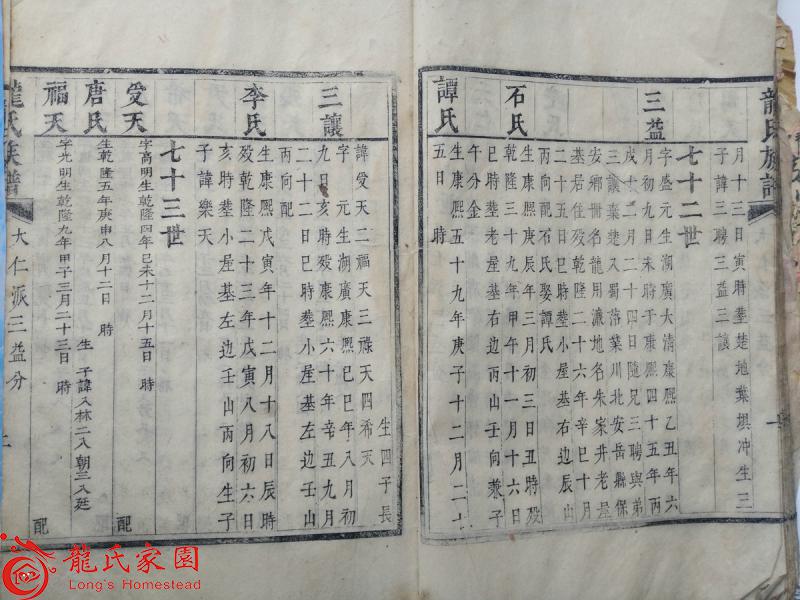 龍氏族譜
一
月十三日寅時塟楚地葉埧冲生三
子諱三聘三益三讓
七十二世
三益
字盛元生湖廣大清康熙乙丑年六
月初九日未時于康熙四十五年丙
戌十二月二十四日隨兄三聘與弟
三讓棄楚入蜀落業川北安岳縣保
安鄉冊名龍用濊地名朱家井老屋
基居住殁乾隆二十六年辛巳十月
二十五日巳時塟小屋基右边辰山
丙向配石氏娶譚氏
石氏
生康熙庚辰年三月初三日丑時殁
乾隆三十九年甲午十一月十六日
巳時塟老屋基丙山壬向兼子
午分金
譚氏
生康熙五十九年庚子十二月二十
五日 時
三讓
生四子長
諱受天二福天三祿天四希天
字 元生湖廣康熙己巳年八月初
九日亥時殁康熙六十年辛丑九月
二十二日巳時塟小屋基左边壬山
丙向配
李氏
生康熙戊寅年十二月十八日辰時
殁乾隆二十三年戊寅八月初六日
亥時塟小屋基左边壬山丙向生子
子諱樂天
七十三世
受天
字高明生乾隆四年己未十二月十五日 時 配
唐氏
生乾隆五年庚申八月十二日 時 生 子諱入林二入朝三入廷
福天
字光明生乾隆九年甲子三月二十三日 時 配
龍氏族譜
大仁派三益分
二
龍氏家園
Long's Homestead